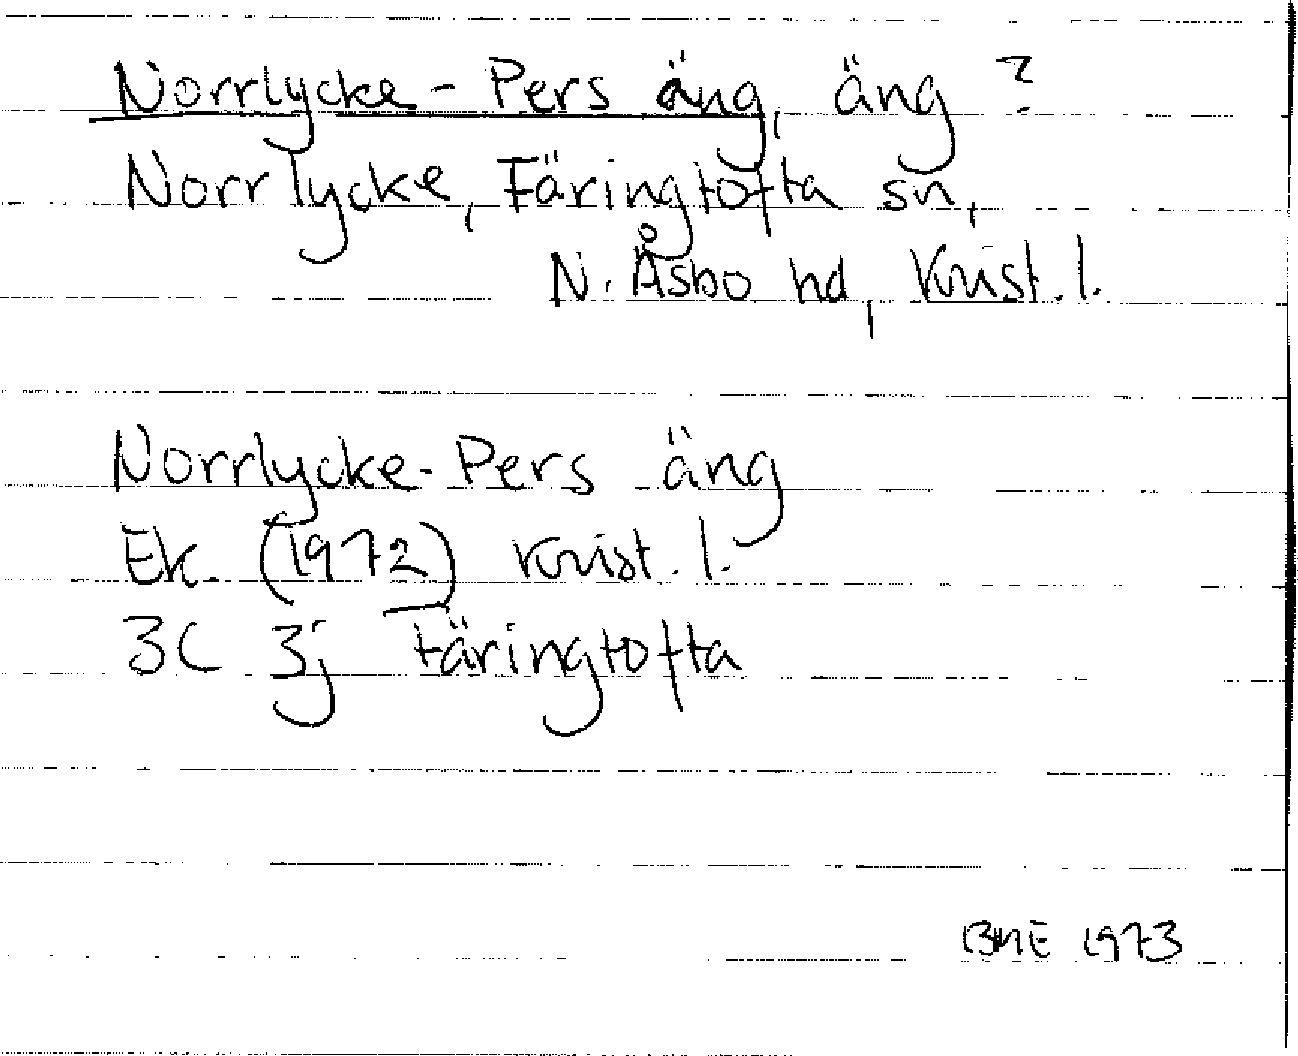 Norrlycke-Pers äng, äng ?
Norrlycke, Färingtofta sn,
N. Åsbo hd, Krist. l.
Norrlycke-Pers äng
Ek. (1972) Krist. l.
3C 3j Färingtofta
1973